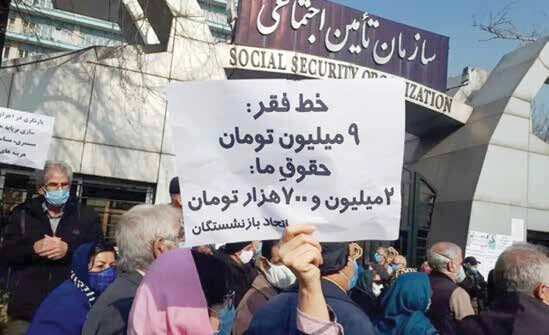 سازمان تأمین اجتماعی
SOCIAL SECURITY ORGANIZATION
خط فقر:
۹ میلیون تومان
حقوقِ ما:
۲ میلیون و ۷۰۰ هزار تومان
اتحاد بازنشستگان
سازی برپایه
هزینه های